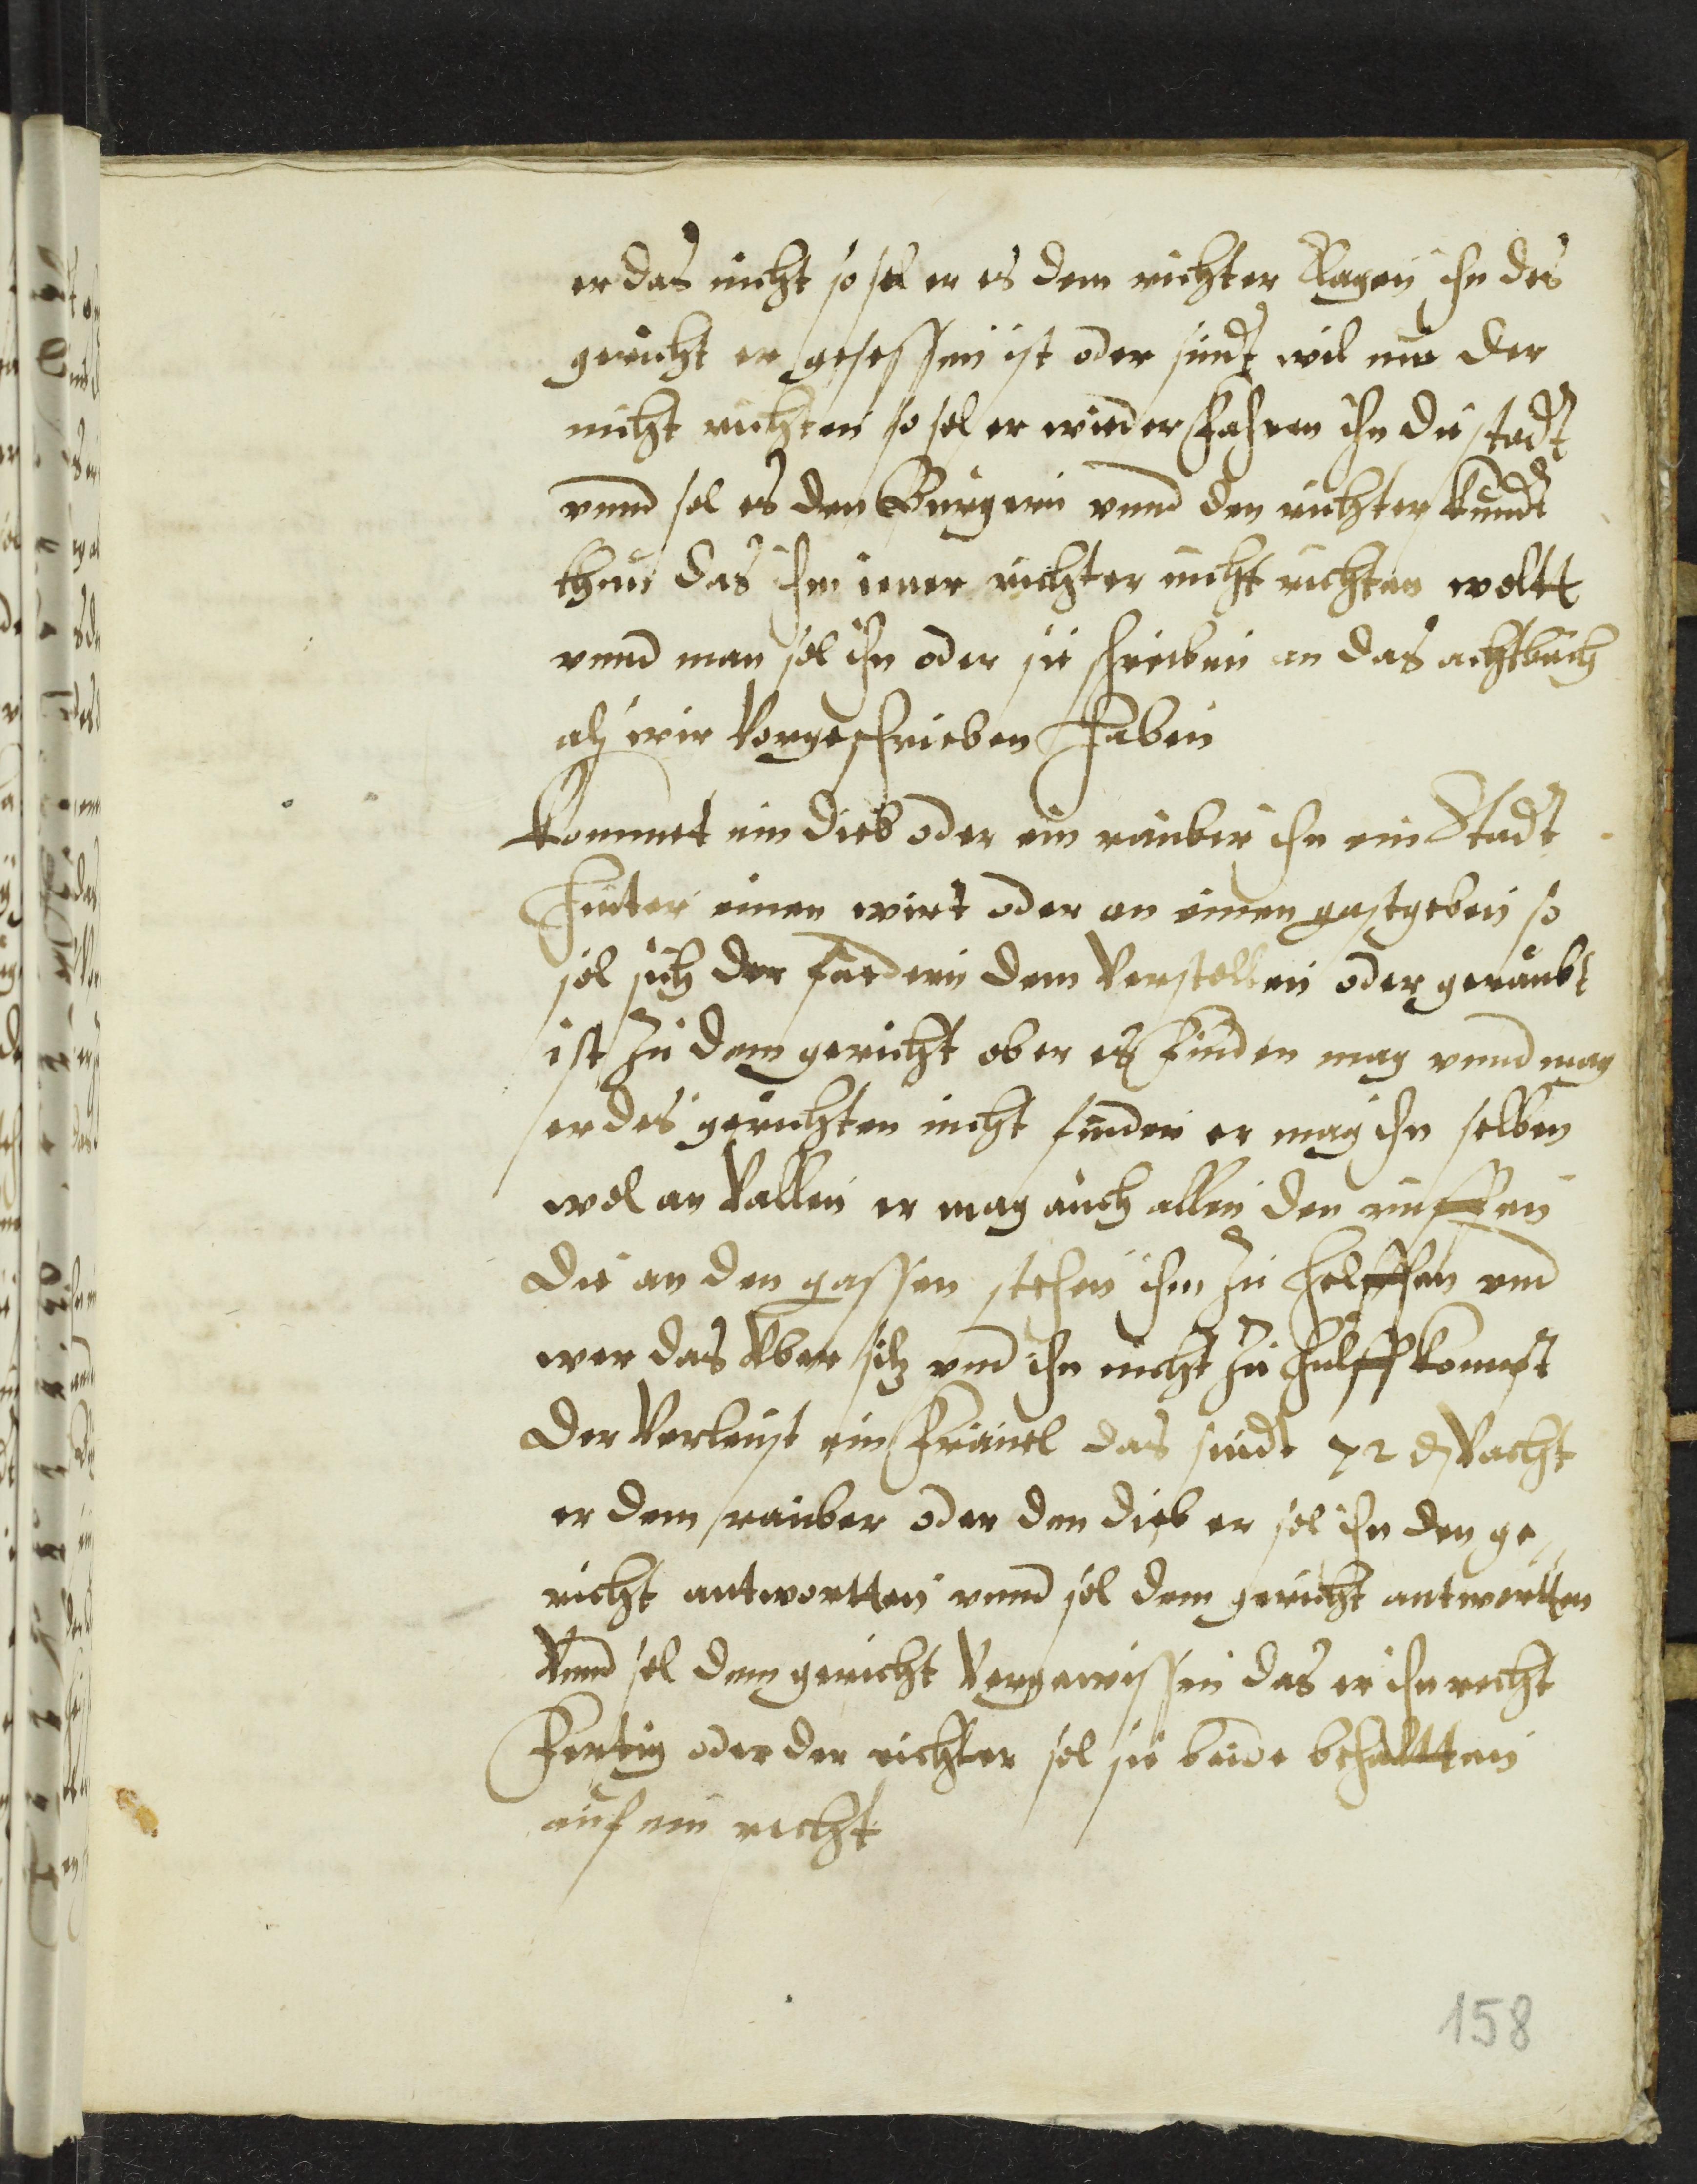 er das nicht so sol er es dem richter klagen ihn des
gericht er gesessen ist oder sindt wil nur der
nicht richten so sol er wieder fahren ihn die stadt
vnnd sol es den Burgern vnnd den richter kundt
thun das ihm iener richter nicht richten woltt
vnnd man sol ihn oder sie schreiben an das achtbuch
alß wir Vorgeschrieben haben
kommet ein dieb oder ein rauber ihn ein Stadt
hinter einen wirt oder an einen gastgeben so
sol sich der fordern dem Verstollen oder geraubt
ist zu dem gericht ob er es finden mag vnnd mag
er des gerichten nicht finden er mag ihn selben
wol an Vallen er mag auch allen den ruffen
die an den gassen stehen ihm zu helffen vnd
wer das Vber sitz vnd ihn nicht zu hulff kompt
der Verleust ein frauel das sindt 72 d Vacht
er dem rauber oder den dieb er sol ihn den ge¬
richt antwortten vnnd sol dem gericht antwortten
Vnnd sol dem gericht Vergewissen das er ihn recht
fertig oder der richter sol sie beide behaltten
auf ein recht
158